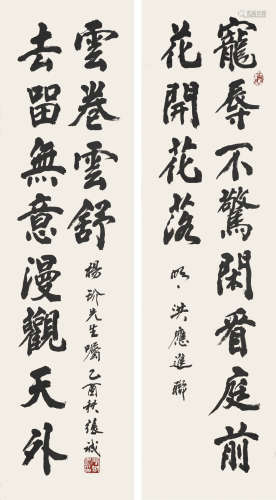 寵辱不驚閑看庭前
花開花落
明·洪應進聯
雲卷雲舒
去留無意漫觀天外
先生囑乙酉秋